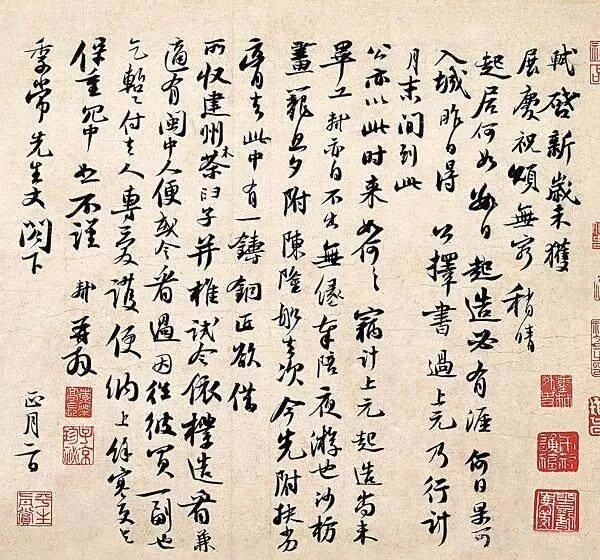 軾啓新歲未獲
展慶祝頌無窮稍晴
起居何如數日起造必有涯何日果可
入城昨日得公擇書過上元乃行計
月末間到此
公亦以此時來如何々竊計上元起造尚未
畢工軾亦自不出無緣奉陪夜游也沙枋
畫籠旦夕附陳隆船去次今先附扶劣
膏去此中有一鑄銅匠欲借
所收建州木茶臼子并椎試令依樣造看兼
適有閩中人便或令看過因往彼買一副也
乞暫付去人專愛護便納上餘寒更乞
保重冗中恕不謹軾再拜
季常先生丈閣下
正月二日
子京珍祕
平生真賞